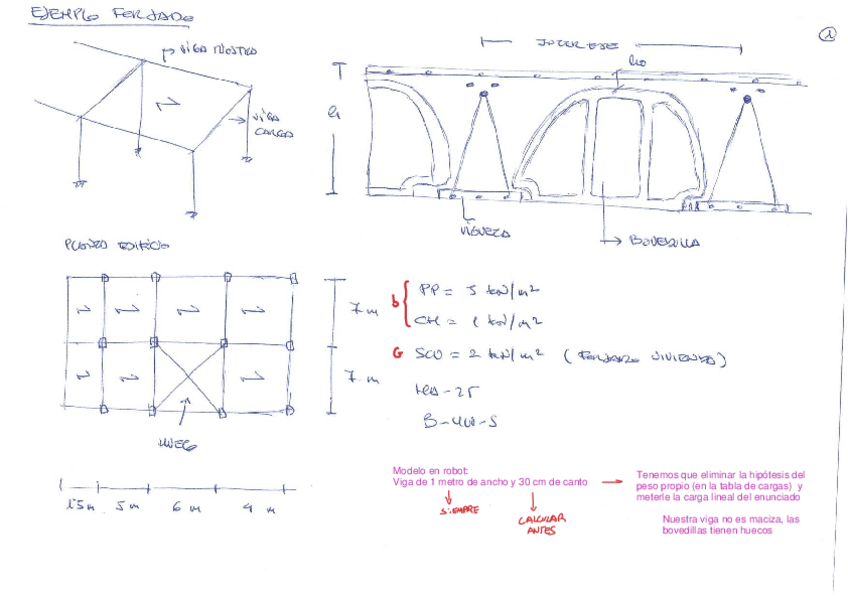 EJEMPLO FORJADO
1
VIGA RIOSTRA
VIGA
CARGA
INTEREJE
ho
h
VIGUETA
BOVEDILLA
PLANTA EDIFICIO
7 m
7 m
HUECO
1'5 m 5 m 6 m 4 m
PP = 5 kN/m²
CM = 1 kN/m²
G SCU = 2 kN/m² (FORJADO VIVIENDA)
HA-25
B-400-S
Modelo en robot:
Viga de 1 metro de ancho y 30 cm de canto
SIEMPRE
CALCULAR
ANTES
Tenemos que eliminar la hipótesis del
peso propio (en la tabla de cargas) y
meterle la carga lineal del enunciado
Nuestra viga no es maciza, las
bovedillas tienen huecos